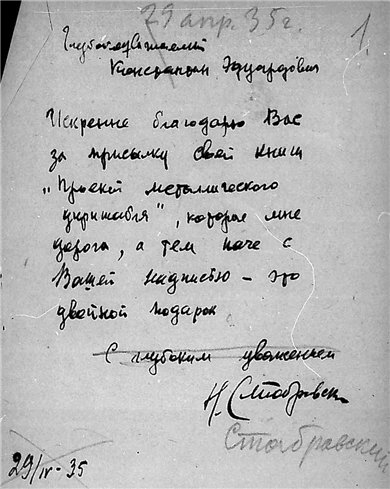 29 апр. 35 г.
1.
Глубокоуважаемый
Константин Эдуардович
Искренне благодарю Вас
за присылку своей книги
„Проект металлического
дирижабля", которая мне
дорога, а тем паче с
Вашей надписью – это
двойной подарок
С глубоким уваженьем
Н. Стабровский
Стабровский
29/IV-35